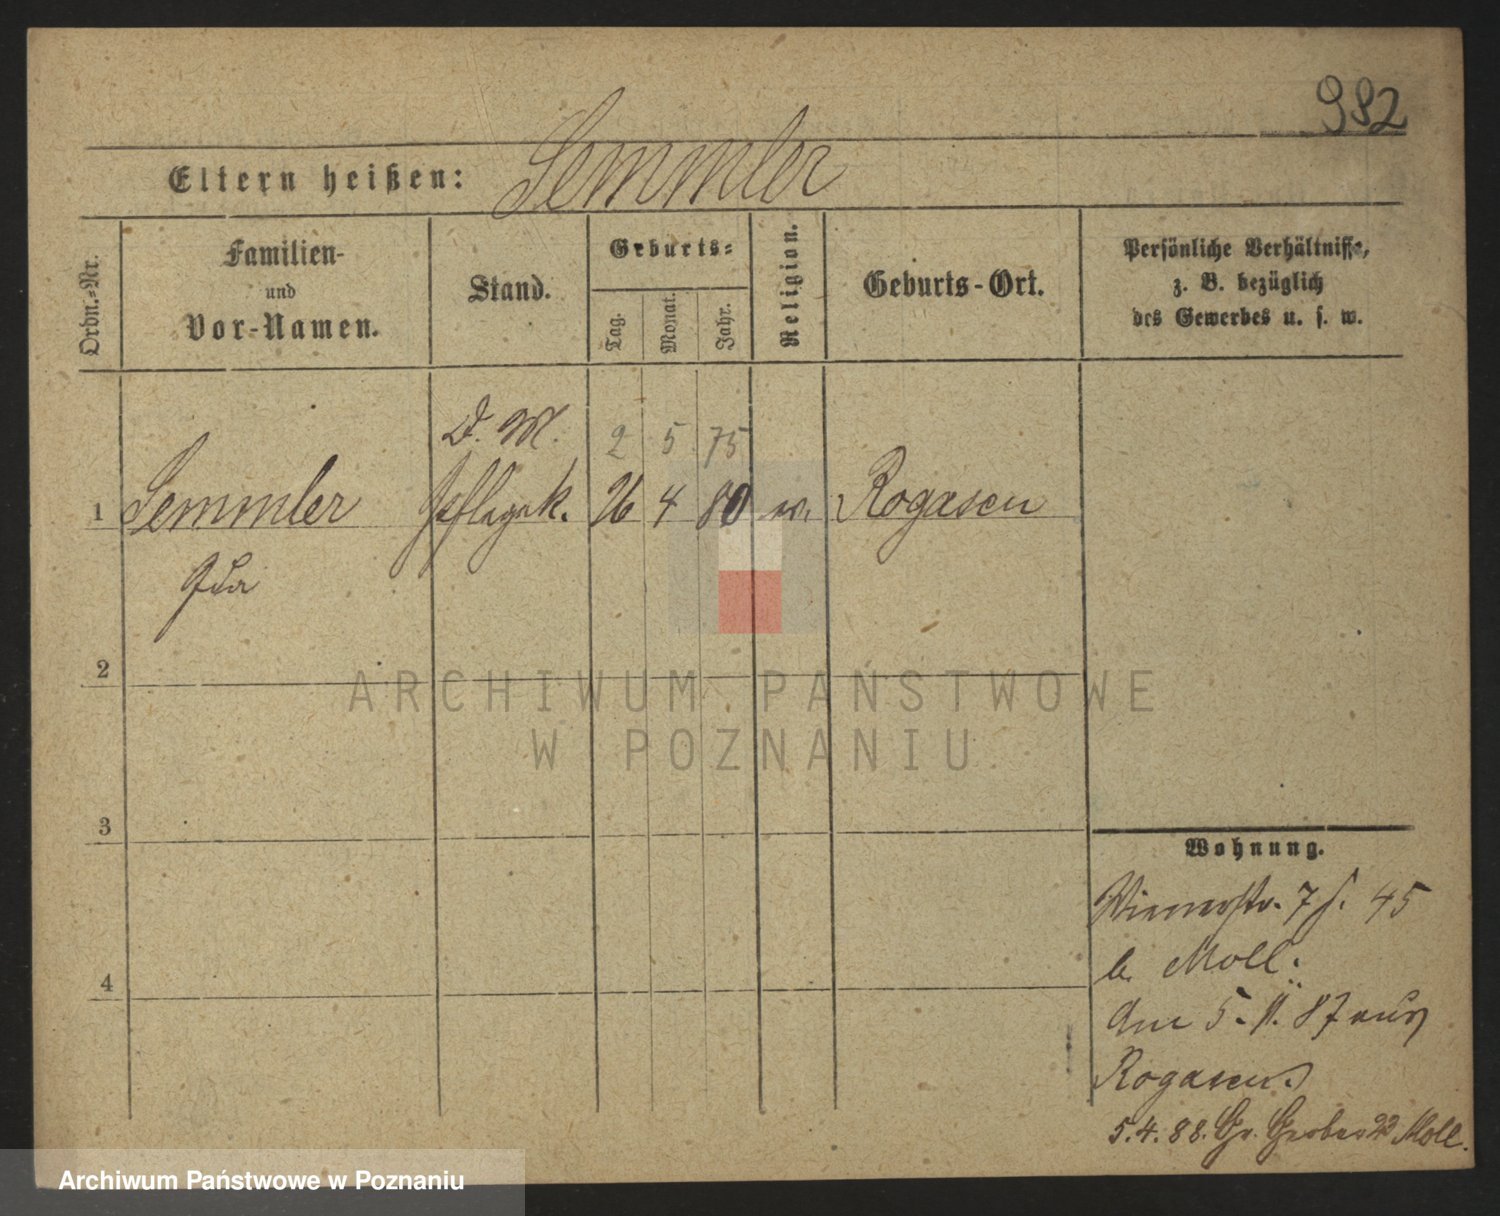 982
Eltern heißen: Semmler
Ordn.-Nr.
Familien-
und
Vor-Namen.
Stand.
Geburts-
Tag.
Monat.
Jahr.
Religion.
Geburts-Ort.
Persönliche Verhältnisse,
z. B. bezüglich
des Gewerbes u. s. w.
D. M. 2 5 75
1 Semmler Pflegek. 26 4 80 Rogasen
Ida
2
3
4
Wohnung.
Wienerstr. 7 45
b. Moll.
Am 5. 11. 87 aus
Rogasen
5.4.88. Gr. Gerber 22 Moll.
ARCHIWUM PAŃSTWOWE
W POZNANIU
Archiwum Państwowe w Poznaniu